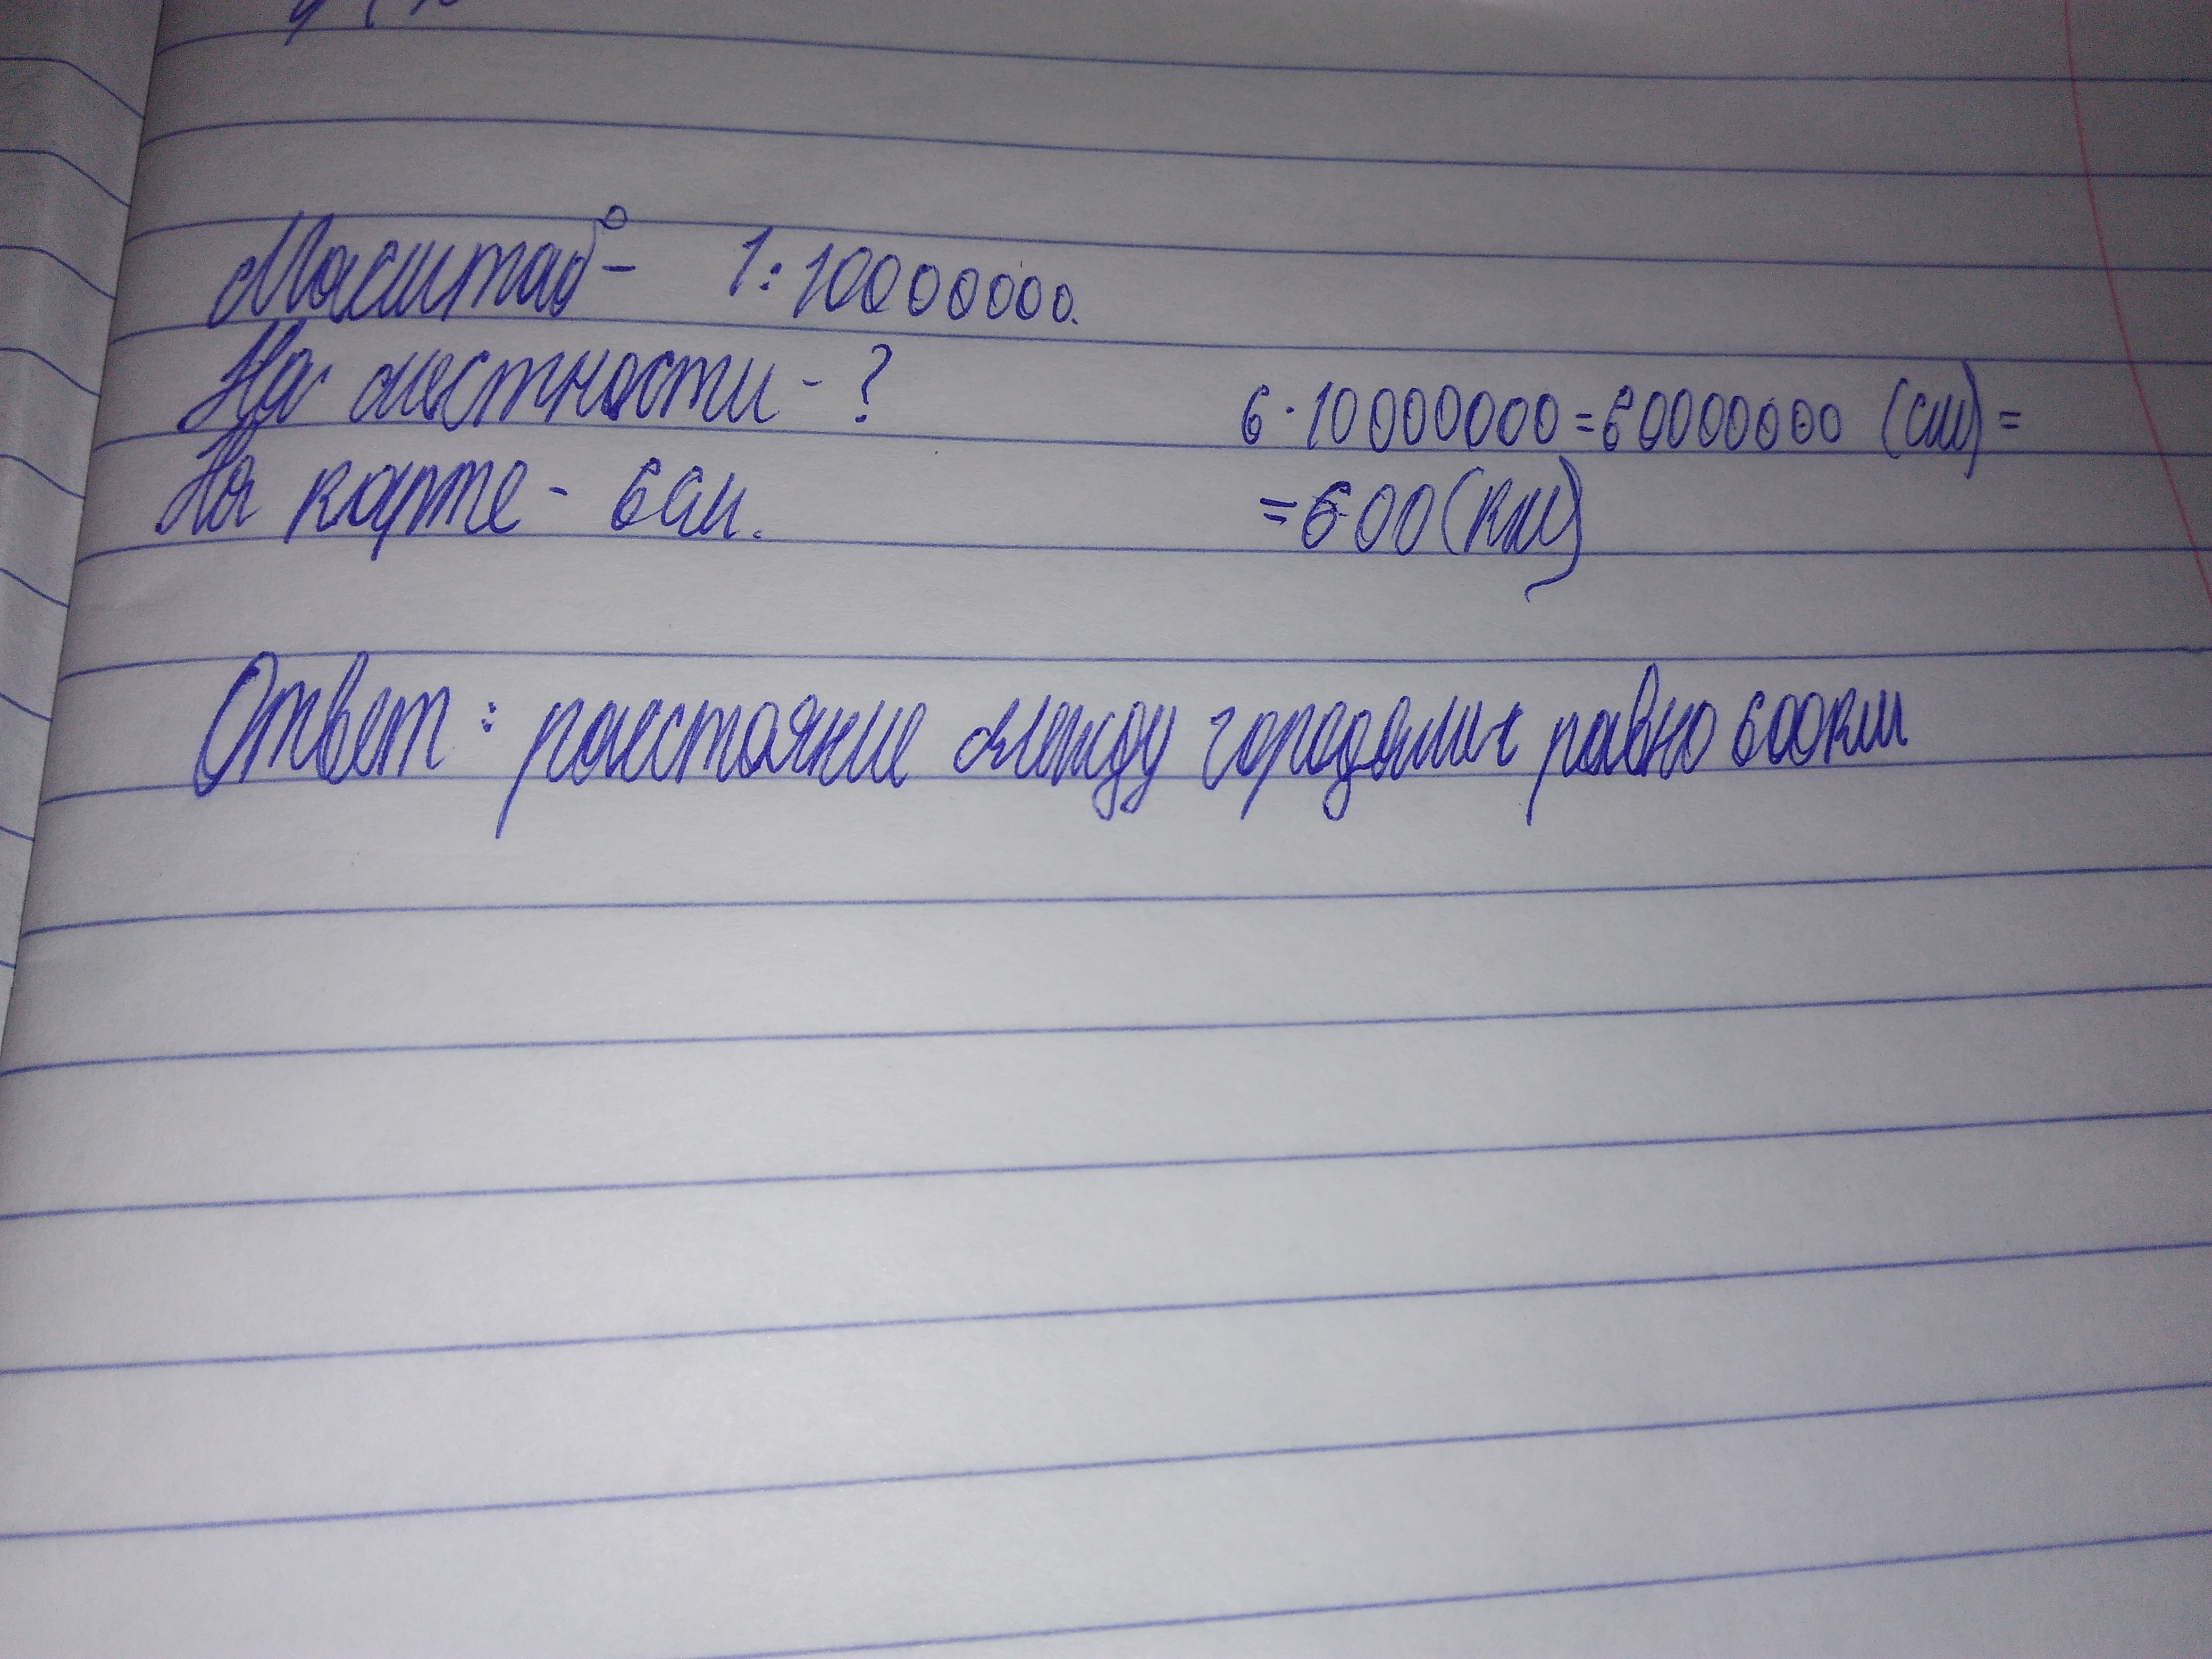 Масштаб - 1:10000000.
На местности - ?
6·10000000=60000000 (см)=
На карте - 6см.
=600(км)
Ответ: расстояние между городами равно 600км